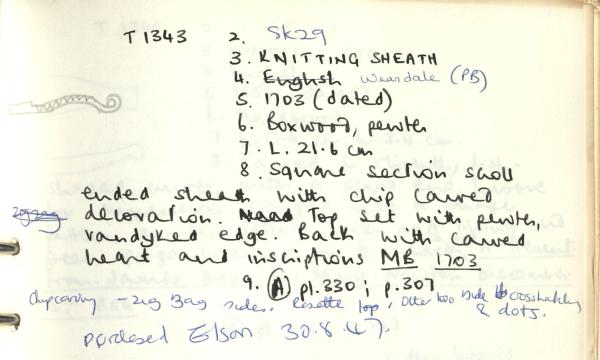 T 1343 2. SK29
3. KNITTING SHEATH
4. English Weardale (PB)
5. 1703 (dated)
6. Boxwood, pewter
7. L. 21.6 cm
8. Square section scroll
ended sheath with chip carved
zigzag decoration. Top set with pewter,
vandyked edge. Back with carved
heart and inscriptions MB 1703
9. (A) pl.330; p.307
Chipcarving - zig zag sides. Rosette top, other two side crosshatching
& dots.
purchased Elson 30.8.47.